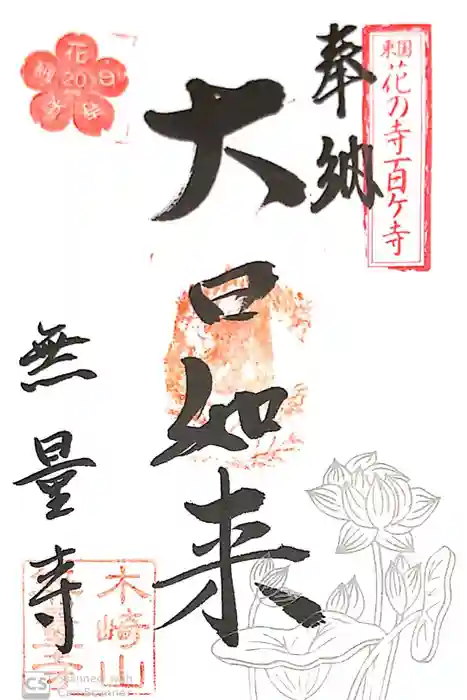 東国花の寺百ケ寺
奉納
大口如来
無量寺
木崎山
花
20
Scanned with
CamScanner
CS